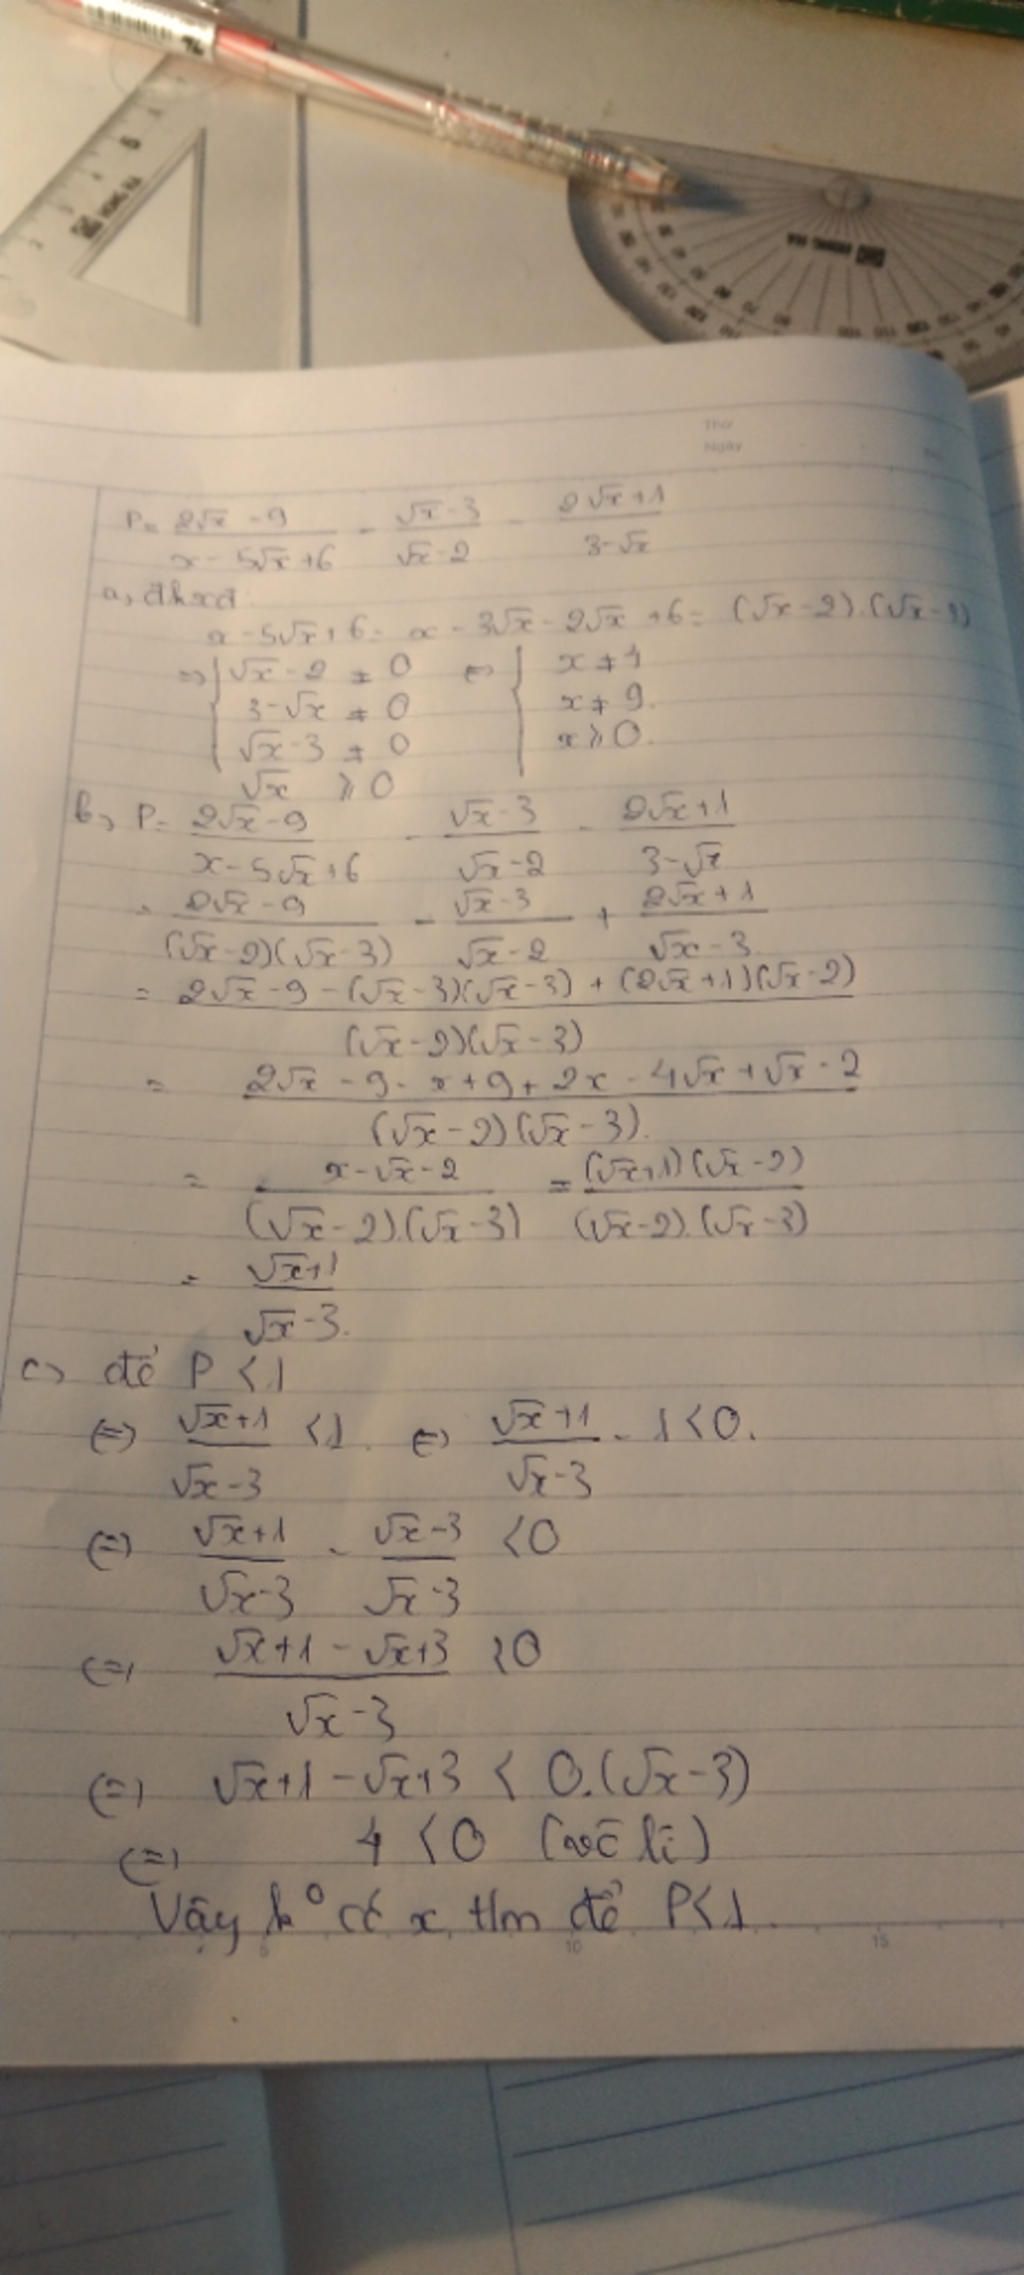 Thứ
Ngày
P = (2√x - 9)/(x - 5√x + 6) - (√x - 3)/(√x - 2) - (2√x + 1)/(3 - √x)
a, đkxđ:
x - 5√x + 6 = x - 3√x - 2√x + 6 = (√x - 2).(√x - 3)
=> { √x - 2 ≠ 0 <=> { x ≠ 4
3 - √x ≠ 0 x ≠ 9.
√x - 3 ≠ 0 x ⩾ 0.
√x ⩾ 0
b, P = (2√x - 9)/(x - 5√x + 6) - (√x - 3)/(√x - 2) - (2√x + 1)/(3 - √x)
= (2√x - 9)/((√x - 2)(√x - 3)) - (√x - 3)/(√x - 2) + (2√x + 1)/(√x - 3)
= (2√x - 9 - (√x - 3)(√x - 3) + (2√x + 1)(√x - 2))/((√x - 2)(√x - 3))
= (2√x - 9 - x + 9 + 2x - 4√x + √x - 2)/((√x - 2)(√x - 3)).
= (x - √x - 2)/((√x - 2).(√x - 3)) = ((√x + 1)(√x - 2))/((√x - 2).(√x - 3))
= (√x + 1)/(√x - 3).
c, để P < 1
<=> (√x + 1)/(√x - 3) < 1. <=> (√x + 1)/(√x - 3) - 1 < 0.
<=> (√x + 1)/(√x - 3) - (√x - 3)/(√x - 3) < 0
<=> (√x + 1 - √x + 3)/(√x - 3) < 0
<=> √x + 1 - √x + 3 < 0.(√x - 3)
<=> 4 < 0 (vô lí)
Vậy k⁰ có x t/m để P < 1.
5 10 15